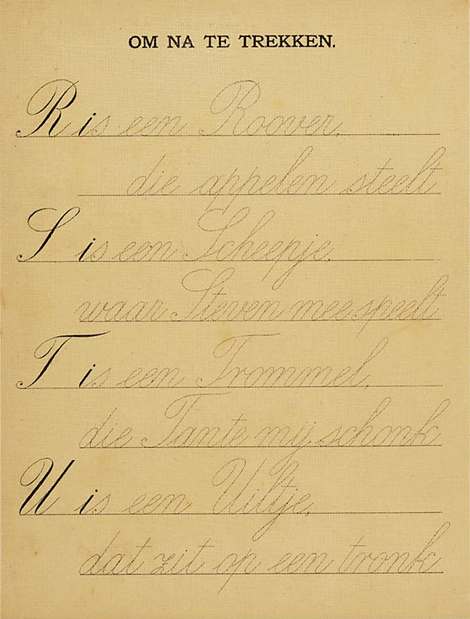 OM NA TE TREKKEN.
R is een Roover,
die appelen steelt
S is een Scheepje,
waar Steven mee speelt
T is een Trommel,
die Tante mij schonk
U is een Uiltje,
dat zit op een tronk